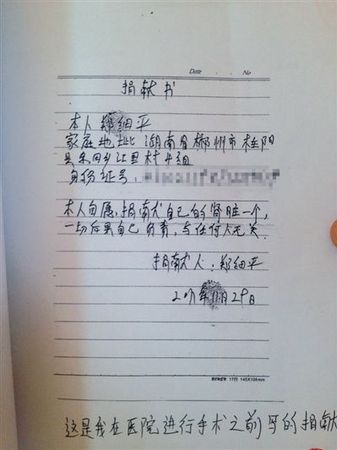 Date No
捐献书
本人郑细平
家庭地址 湖南省郴州市桂阳
县东回乡江里村4组
身份证号:
本人自愿,捐献自己的肾脏一个,
一切后果自己负责,与任何人无关.
捐献人:郑细平
29日
17行 145X106mm
这是我在医院进行手术之前写的捐献